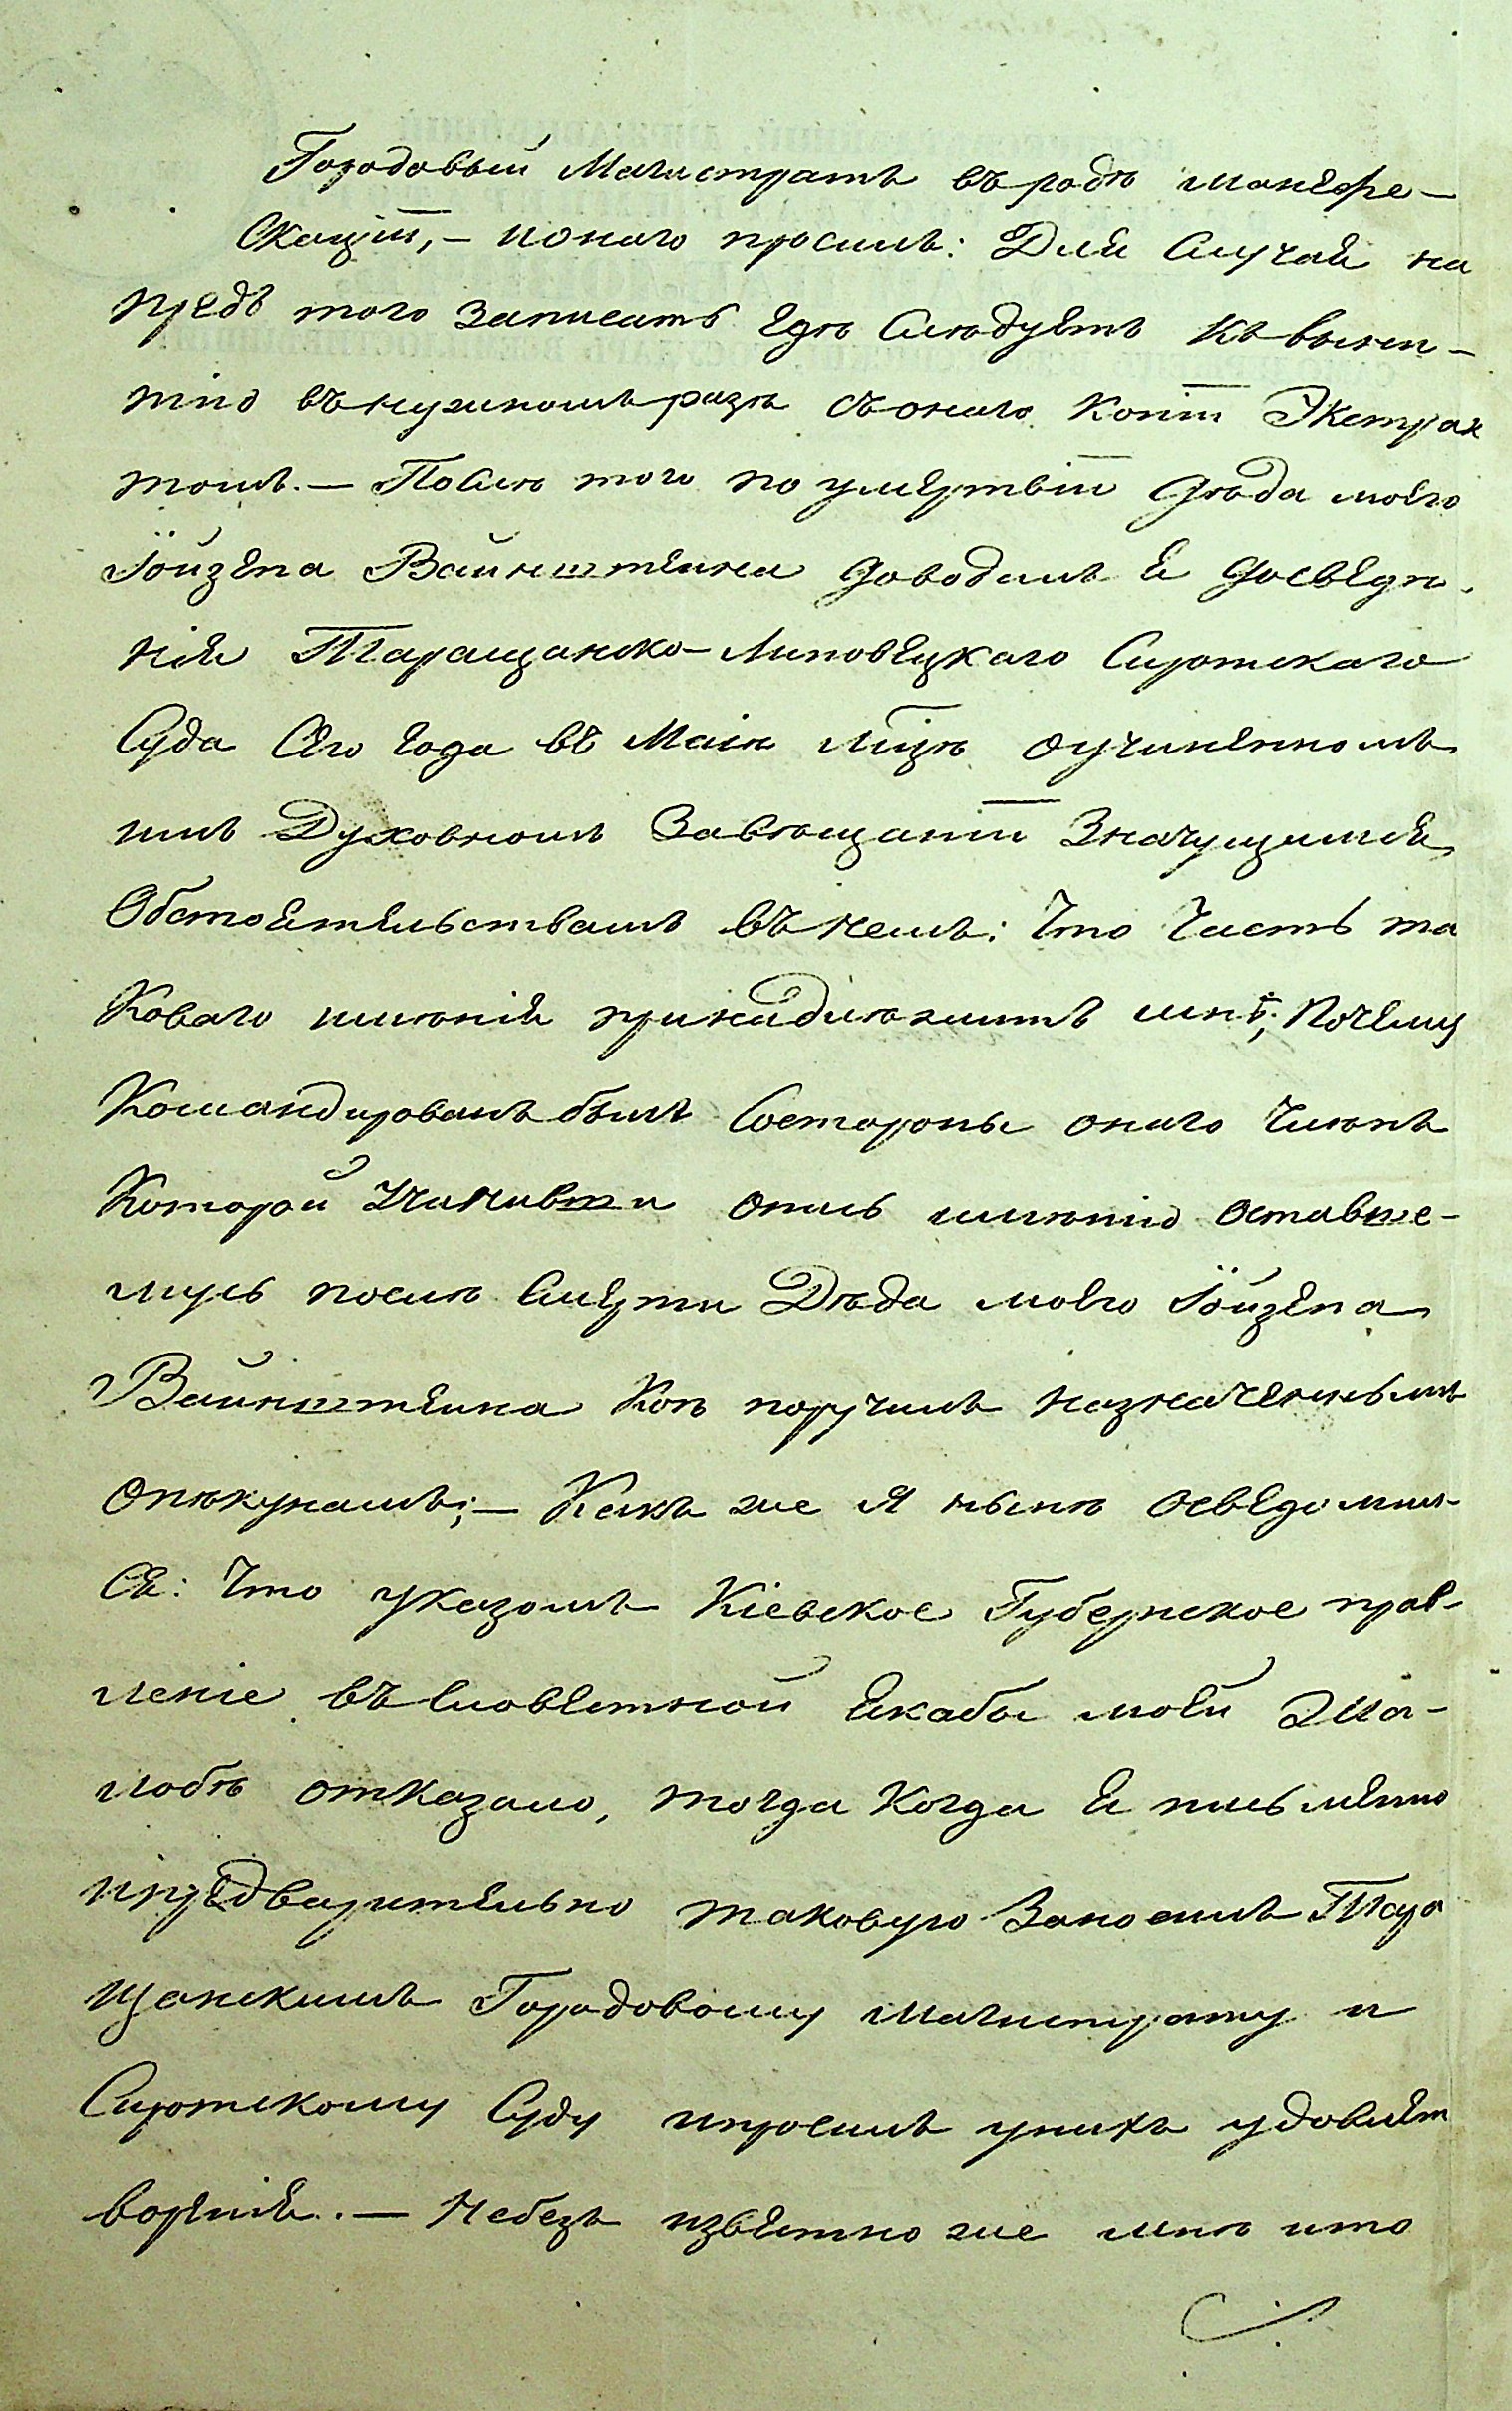 Городовый Магистратъ въ родѣ манефе-
скаціи, – и онаго просилъ: Для Случая на
предъ того записать гдѣ Слѣдуетъ къ выня-
тію въ нужномъ разѣ съ онаго копіи Экстрак
томъ. – Послѣ того по умертвіи Дѣда моего
Іойзепа Вайнштейна доводилъ я досведѣ-
нія Таращанско-Липовецкаго Сиротскаго
Суда Сего года въ Маіѣ мцѣ оучиненномъ
имъ Духовномъ Завѣщаніи Значущимся
Обстоятельствамъ въ немъ: Что Часть та
коваго имѣнія принадлѣжитъ мнѣ; почему
Командированъ былъ Состороны онаго Члѣнъ
Которой Учинивши опись имѣнію оставше-
муся послѣ Смерти Дѣда моего Іойзепа
Вайнштейна поручилъ назначеннымъ
опѣкунамъ; – Какъ же я нынѣ осведомил-
ся: Что указомъ Кіевское Губернское прав-
леніе въ словестной якабы моей Жа-
лобѣ отказало, тогда когда я письменно
предварительно таковую Заносилъ Тара
щанскимъ Городовому магистрату и
Сиротскому Суду ипросилъ унихъ удовлет
воренія. – Небезъ извѣстно же мнѣ что